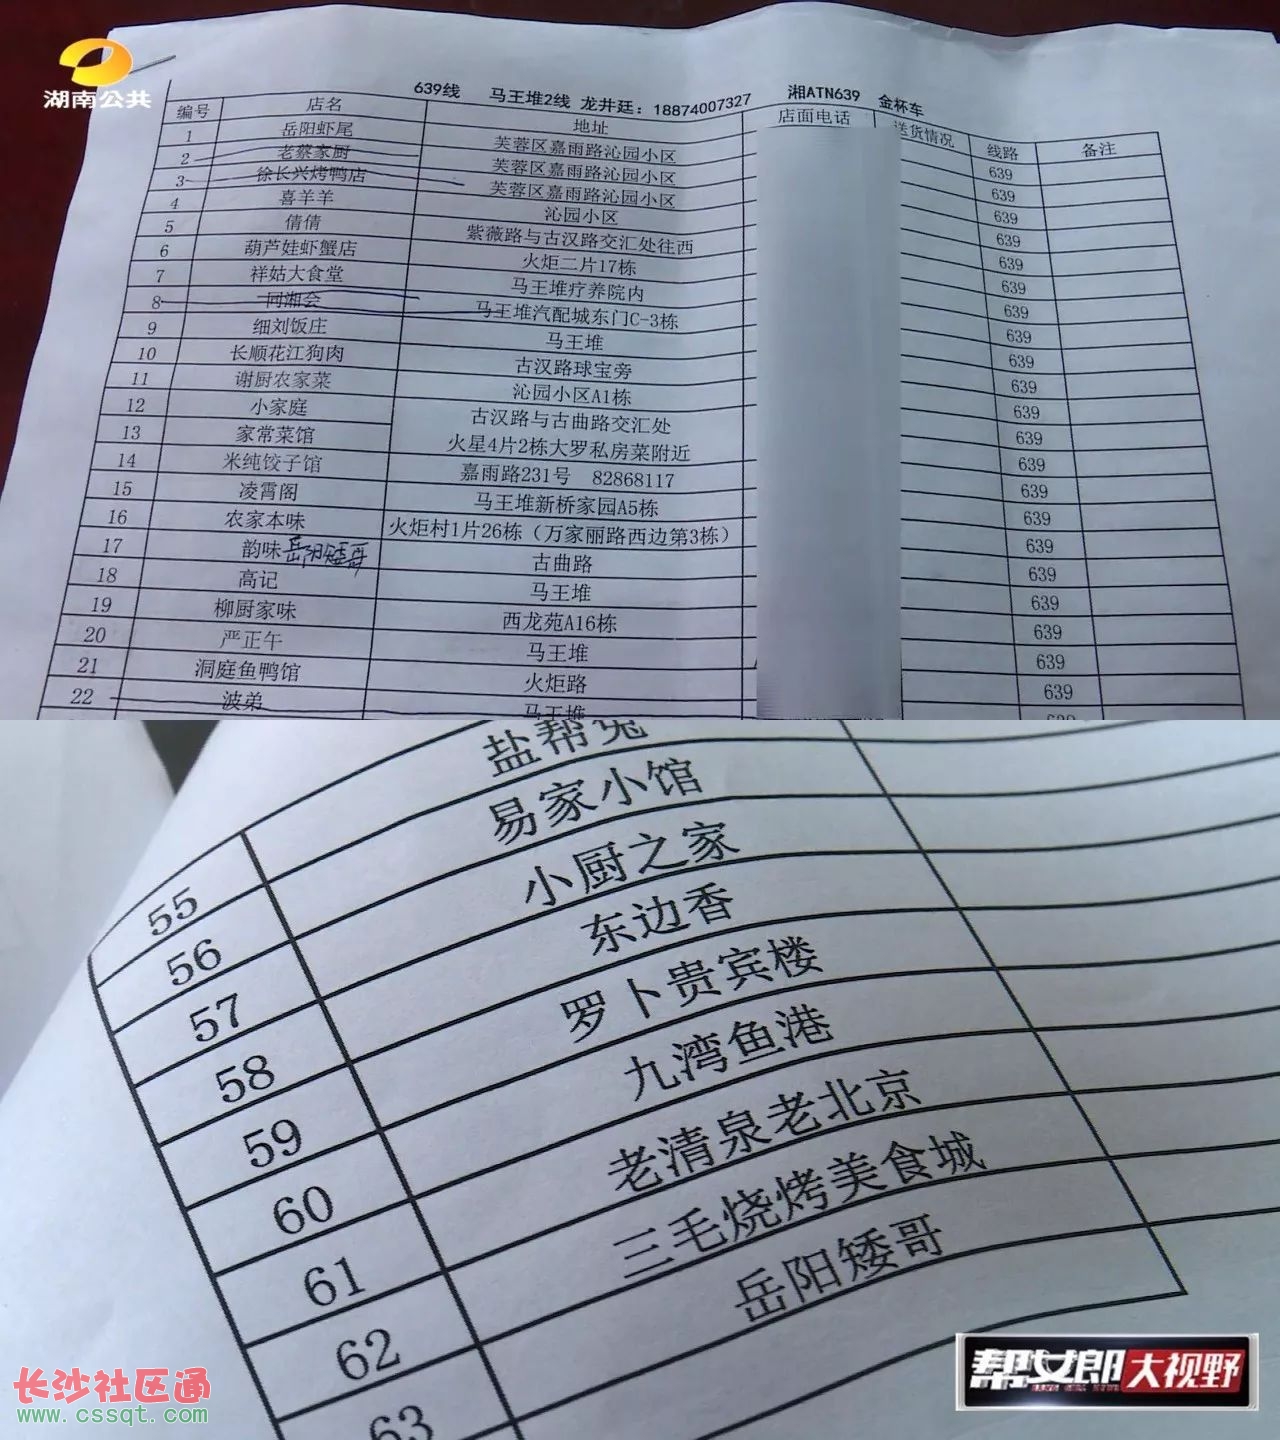 湖南公共
639线 马王堆2线 龙井廷：18874007327 湘ATN639 金杯车
编号 店名 地址 店面电话 送货情况 线路 备注
1 岳阳虾尾 芙蓉区嘉雨路沁园小区 639
2 老蔡家厨 芙蓉区嘉雨路沁园小区 639
3 徐长兴烤鸭店 芙蓉区嘉雨路沁园小区 639
4 喜羊羊 沁园小区 639
5 倩倩 紫薇路与古汉路交汇处往西 639
6 葫芦娃虾蟹店 火炬二片17栋 639
7 祥姑大食堂 马王堆疗养院内 639
8 同湘会 马王堆汽配城东门C-3栋 639
9 细刘饭庄 马王堆 639
10 长顺花江狗肉 古汉路球宝旁 639
11 谢厨农家菜 沁园小区A1栋 639
12 小家庭 古汉路与古曲路交汇处 639
13 家常菜馆 火星4片2栋大罗私房菜附近 639
14 米纯饺子馆 嘉雨路231号 82868117 639
15 凌霄阁 马王堆新桥家园A5栋 639
16 农家本味 火炬村1片26栋（万家丽路西边第3栋） 639
17 韵味 岳阳矮哥 古曲路 639
18 高记 马王堆 639
19 柳厨家味 西龙苑A16栋 639
20 严正午 马王堆 639
21 洞庭鱼鸭馆 火炬路 639
22 波弟 马王堆 639
盐帮兔
55 易家小馆
56 小厨之家
57 东边香
58 罗卜贵宾楼
59 九湾鱼港
60 老清泉老北京
61 三毛烧烤美食城
62 岳阳矮哥
63
长沙社区通
www.cssqt.com
帮女郎大视野